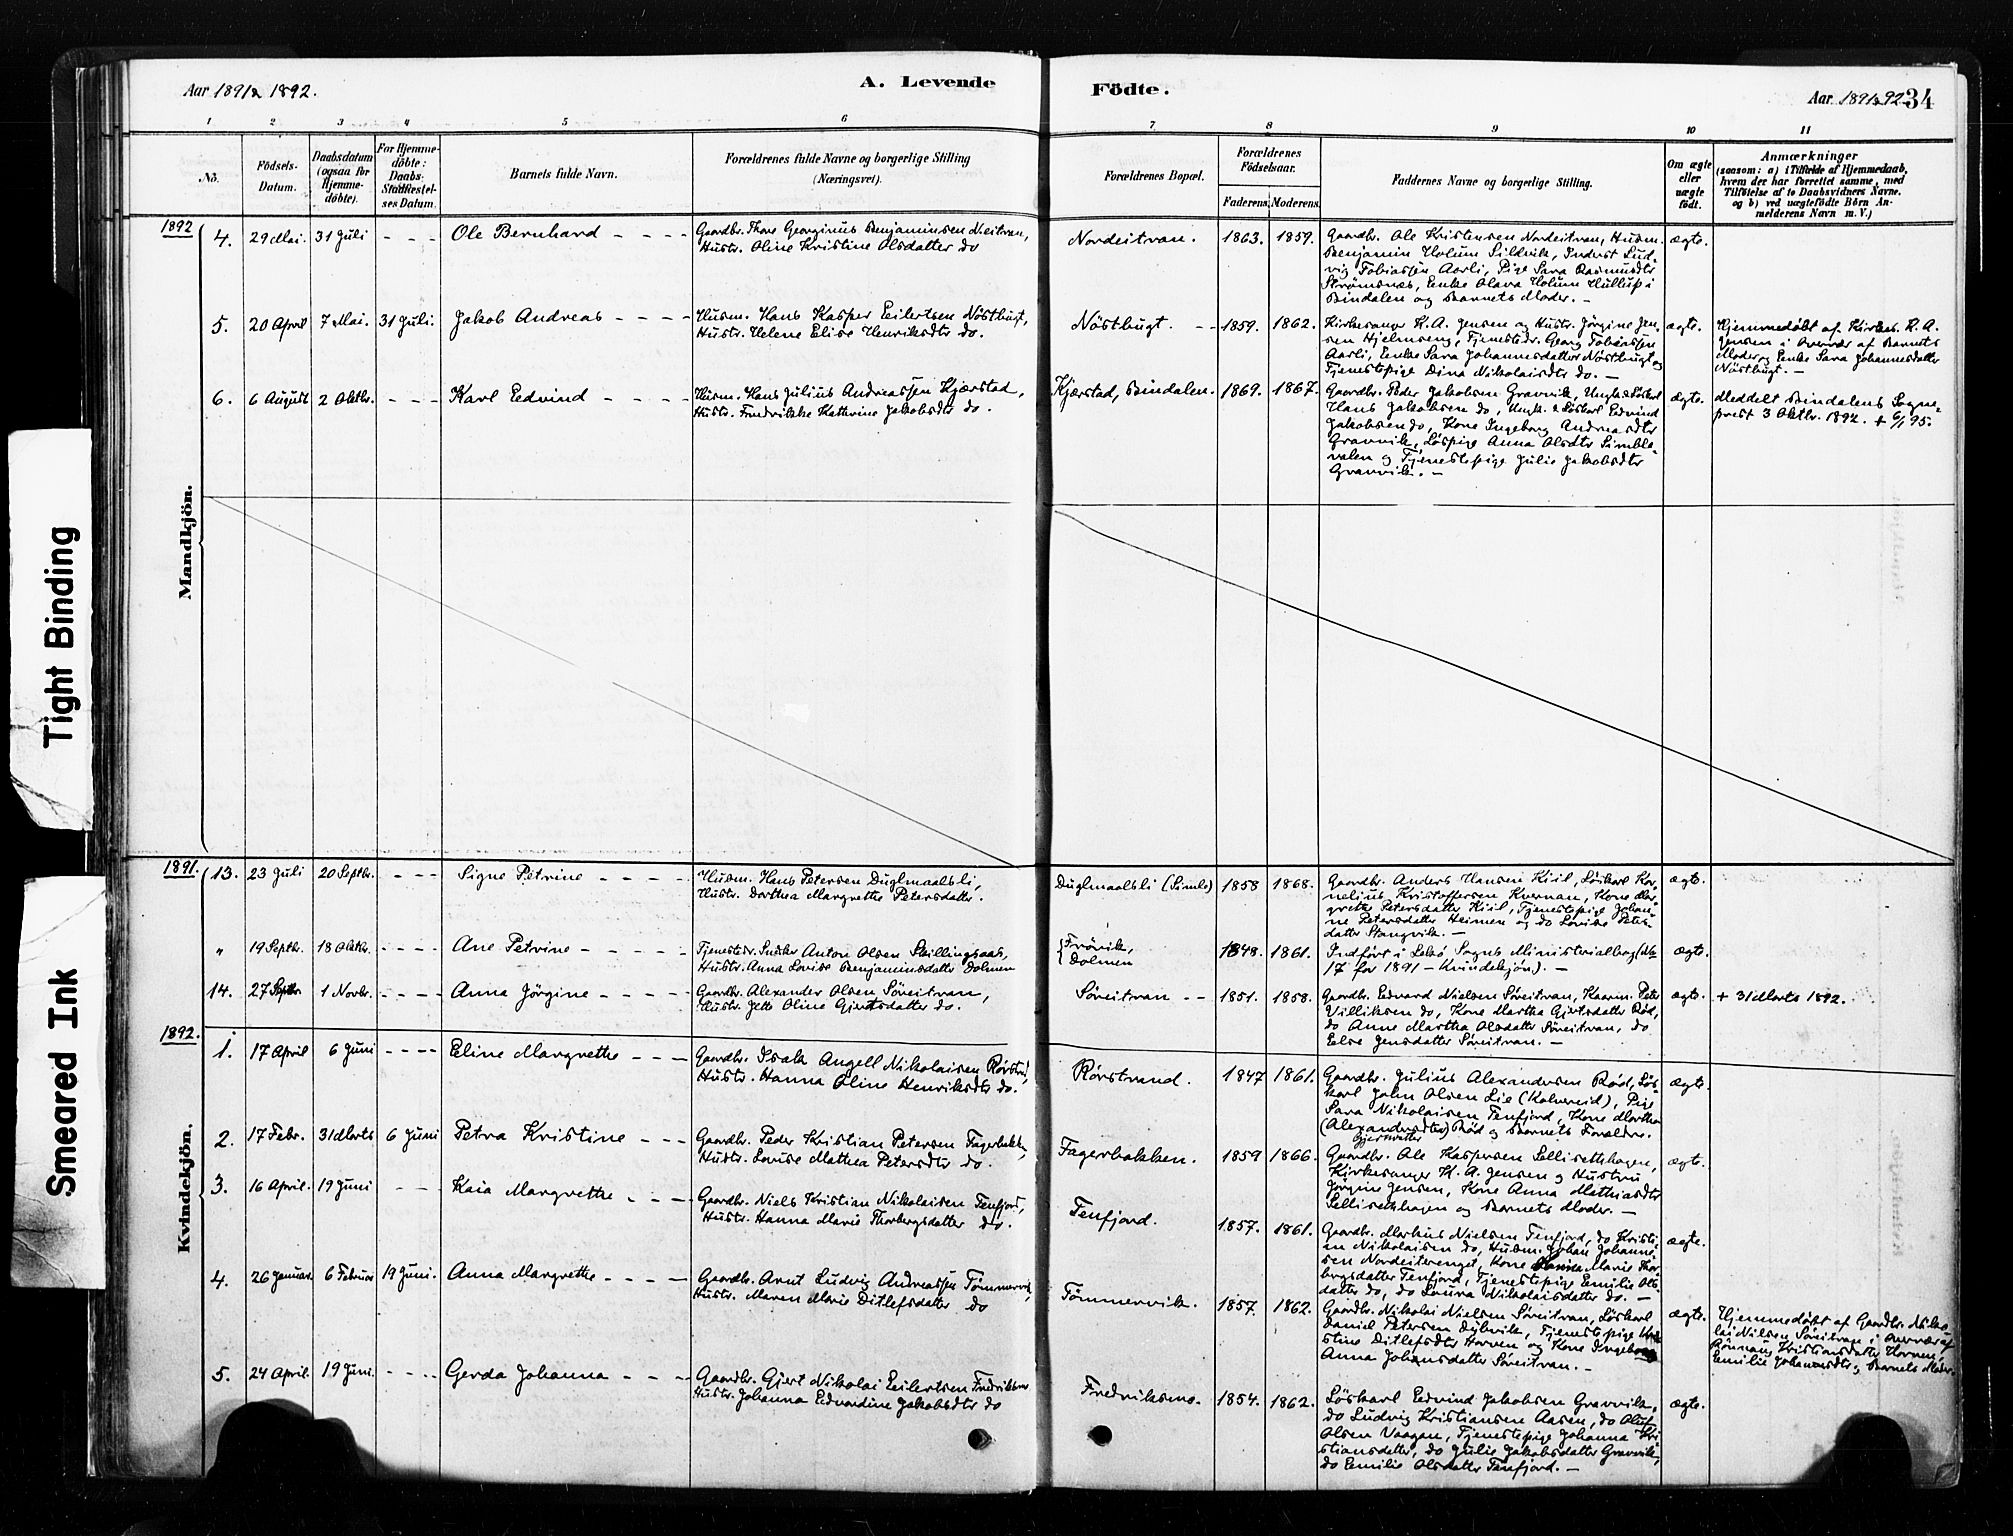 Tight Binding
Smeared Ink
Aar 1891 & 1892.
A. Levende
Födte.
Aar 1891 & 92
34
1 2 3 4 5 6 7 8 9 10 11
No.
Födsels-Datum.
Daabsdatum (ogsaa for Hjemme-döbte).
For Hjemme-döbte: Daabs-Stadfæstel-ses Datum.
Barnets fulde Navn.
Forældrenes fulde Navne og borgerlige Stilling (Næringsvei).
Forældrenes Bopæl.
Forældrenes Födselsaar.
Faderens. Moderens.
Faddernes Navne og borgerlige Stilling.
Om ægte eller uægte födt.
Anmærkninger
(saasom: a) i Tilfælde af Hjemmedaab,
hvem der har forrettet samme, med
Tilföielse af to Daabsvidners Navne.
og b) ved uægtefödte Börn An-
melderens Navn m. V.)
Mandkjön.
1892
4. 29 Mai. 31 Juli - - - Ole Bernhard - - - -
Gaardbr. Thore Georginus Benjaminsen Neitran,
Hustr. Oline Kristine Olsdatter do
Nordeitran. 1863. 1859.
Gaardbr. Ole Kristensen Nordeitran, Husm.
Benjamin Holum Sildvik, Inderst Lud-
vig Tobiassen Aarli, Pige Sara Rasmusdtr
Strømsnæs, Enke Olava Holum Hullup i
Bindalen og Barnets Moder. -
ægte.
5. 20 April 7 Mai. 31 Juli. Jakob Andreas - - - -
Husm. Hans Kasper Eilertsen Nöstbugt,
Hustr. Helene Elise Henriksdtr do.
Nöstbugt. - - 1859. 1862.
Kirkesanger K. A. Jensen og Hustr. Jörgine Jen-
sen Hjelmseng, Tjenestedr. Georg Tobiassen
Aarli, Enke Sara Johannesdatter Nöstbugt og
Tjenestepige Dina Nikolaisdtr do. -
ægte.
Hjemmedöbt af Kirkes. K. A.
Jensen i Overvær af Barnets
Moder og Enke Sara Johannesdatter
Nöstbugt. -
6. 6 August 2 Oktbr. - - - Karl Edvind - - - -
Husm. Hans Julius Andreassen Kjærstad,
Hustr. Fredrikke Kathrine Jakobsdtr do.
Kjærstad, Bindalen. 1869. 1867.
Gaardbr. Peder Jakobsen Gravvik, Ungk. & Löskarl
Hans Jakobsen do, Ungk. & Löskarl Edvind
Jakobsen do, Kone Ingeborg Andreasdtr
Gravvik, Löspige Anna Olsdtr Simle-
valen og Tjenestepige Julie Jakobsdtr
Gravvik. -
ægte.
Meddelt Bindalens Sogne-
prest 3 Oktbr. 1892. + 6/1 95.
Kvindekjön.
1891.
13. 23 Juli 20 Septbr. - - - Signe Petrine - - - -
Husm. Hans Petersen Duglmaalsli,
Hustr. Dorthea Margrethe Petersdatter.
Duglmaalsli (Simle) 1858 1868.
Gaardbr. Anders Hansen Kiil, Löskarl Kor-
nelius Kristoffersen Kvernan, Kone Mar-
grethe Petersdatter Kiil, Tjenestepige Johan-
ne Petersdatter Heimen og do Lovise Peters-
datter Stangvik. -
ægte.
" 19 Septbr. 18 Oktbr. - - - - Ane Petrine - - - -
Tjenestedr. Anton Olsen Skillingsaas,
Hustr. Anna Lovise Benjaminsdatter Dolmen
Frövik,
Dolmen
1848. 1861.
Indfört i Lekö Sogns Ministerialbog (No
17 for 1891 - Kvindekjön). -
ægte.
14. 27 Septbr 1 Novbr. - - - - Anna Jörgine - - - -
Gaardbr. Alexander Olsen Söreitran,
Hustr. Jette Oline Gjertsdatter do.
Söreitran - - 1851. 1858.
Gaardbr. Edvard Nielsen Söreitran, Kaarm. Peter
Villiksen do, Kone Martha Gjertsdatter Röd,
do Anne Martha Olsdatter Söreitran, do
Else Jensdatter Söreitran. -
ægte.
+ 31 Marts 1892.
1892.
1. 17 April 6 Juni - - - - Eline Margrethe - - -
Gaardbr. Isak Angell Nikolaisen Rörstrand,
Hustr. Hanna Oline Henriksdtr do.
Rörstrand. 1847 1861.
Gaardbr. Julius Alexandersen Röd, Lös-
karl John Olsen Lie (Kolvereid), Pige
Sara Nikolaisen Tenfjord, Kone Martha
(Alexandersdtr) Röd og Barnets Forældre.
Gjertsdatter
ægte.
2. 17 Febr. 31 Marts 6 Juni Petra Kristine - - -
Gaardbr. Peder Kristian Petersen Fagerbakken,
Hustr. Lovise Mathea Petersdtr do.
Fagerbakken. 1859 1866.
Gaardbr. Ole Kaspersen Sellisethhagen,
Kirkesanger K. A. Jensen og Hustru
Jörgine Jensen, Kone Anna Mathiasdtr
Sellisethhagen og Barnets Moder. -
ægte.
3. 16 April. 19 Juni - - - Kaia Margrethe - - -
Gaardbr. Niels Kristian Nikolaisen Tenfjord,
Hustr. Hanna Marie Thorbergsdatter do.
Tenfjord. 1857. 1861.
Gaardbr. Markus Nielsen Tenfjord, do Kristi-
an Nikolaisen do, Husm. Johan Johanne-
sen Nordeiterenget, Kone Marie Thor-
bergsdatter Tenfjord, Tjenestepige Emilie Ols-
datter do, do Laura Nikolaisdatter do. -
ægte.
4. 26 Januar. 6 Februar 19 Juni. Anna Margrethe - - - -
Gaardbr. Arnt Ludvig Andreassen Tömmervik,
Hustr. Maren Marie Ditlefsdatter do
Tömmervik. 1857. 1862.
Gaardbr. Nikolai Nielsen Söreitran, Löskarl
Daniel Petersen Dybvik, Tjenestepige
stine Ditlefsdtr Horven og Kone Ingeborg
Anna Johansdatter Söreitran. -
ægte.
Hjemmedöbt af Gaardbr. Niko-
lai Nielsen Söreitran i Overvær af
Rönnaug Kristiansdatter Horven,
Emilie Johannsdtr og Barnets Moder.
5. 24 April. 19 Juni. - - - - Gerda Johanna - - -
Gaardbr. Gjert Nikolai Eilertsen Fredriksnes
Hustr. Johanna Edvardine Jakobsdtr do
Fredriksnes. 1854. 1862.
Löskarl Edvind Jakobsen Gravvik,
do Ludvig Kristiansen Aasen, do Oluf
Olsen Vaagan, Tjenestepige Johanna Kri-
stiansdatter, do Julie Jakobsdatter Gravvik,
do Emilie Olsdatter Tenfjord. -
ægte.